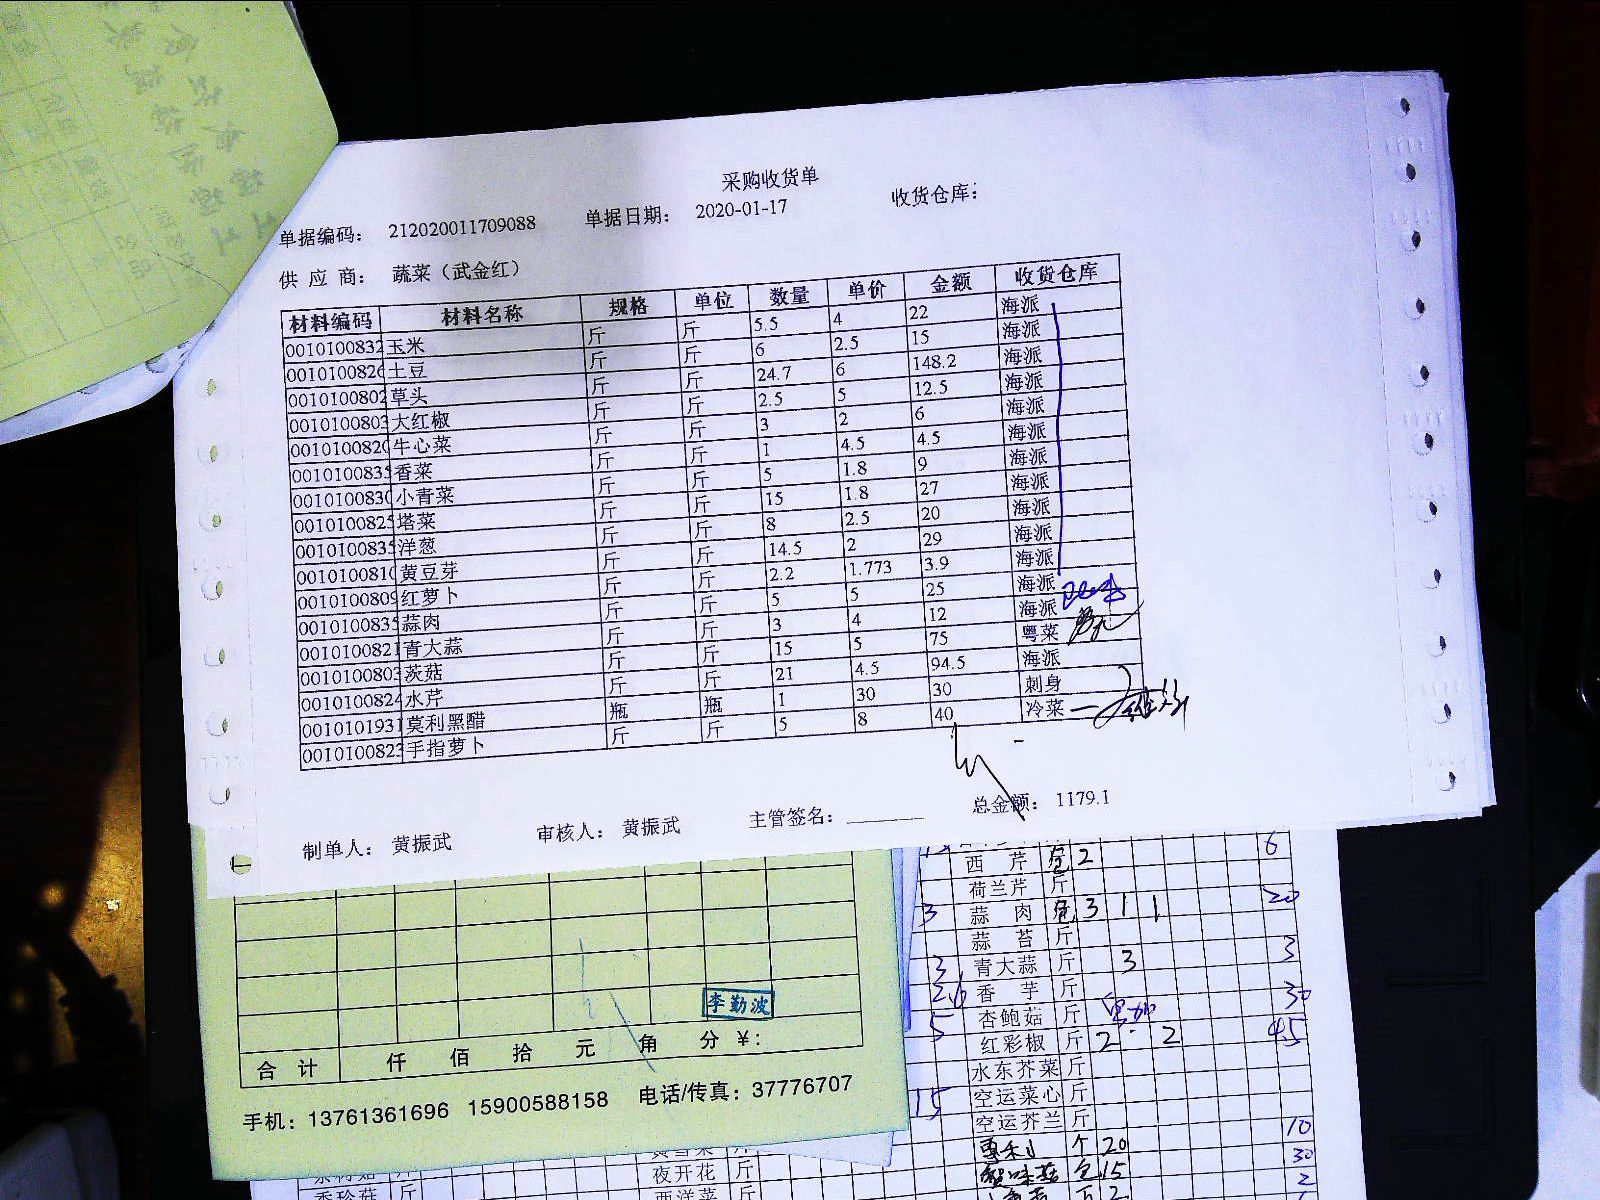 采购收货单
单据编码： 212020011709088 单据日期： 2020-01-17 收货仓库：
供 应 商： 蔬菜（武金红）
材料编码 材料名称 规格 单位 数量 单价 金额 收货仓库
0010100832 玉米 斤 斤 5.5 4 22 海派
0010100826 土豆 斤 斤 6 2.5 15 海派
0010100802 草头 斤 斤 24.7 6 148.2 海派
0010100803 大红椒 斤 斤 2.5 5 12.5 海派
0010100820 牛心菜 斤 斤 3 2 6 海派
0010100835 香菜 斤 斤 1 4.5 4.5 海派
0010100830 小青菜 斤 斤 5 1.8 9 海派
0010100825 塔菜 斤 斤 15 1.8 27 海派
0010100835 洋葱 斤 斤 8 2.5 20 海派
0010100810 黄豆芽 斤 斤 14.5 2 29 海派
0010100809 红萝卜 斤 斤 2.2 1.773 3.9 海派
0010100835 蒜肉 斤 斤 5 5 25 海派
0010100821 青大蒜 斤 斤 3 4 12 海派
0010100803 茨菇 斤 斤 15 5 75 粤菜
0010100824 水芹 斤 斤 21 4.5 94.5 海派
0010101931 莫利黑醋 瓶 瓶 1 30 30 刺身
0010100823 手指萝卜 斤 斤 5 8 40 冷菜
制单人： 黄振武 审核人： 黄振武 主管签名： 总金额： 1179.1
西 芹 2 6
荷兰芹 斤
3 蒜 肉 3 1 1 20
蒜 苔 斤
3 青大蒜 斤 3 3
香 芋 斤 30
5 杏鲍菇 斤
红彩椒 斤 2 2 45
水东芥菜 斤
15 空运菜心 斤
空运芥兰 斤 10
个 20 30
15 2
李勤波
合 计 仟 佰 拾 元 角 分 ￥：
手机：13761361696 15900588158 电话/传真：37776707
夜开花 斤
西洋菜 斤